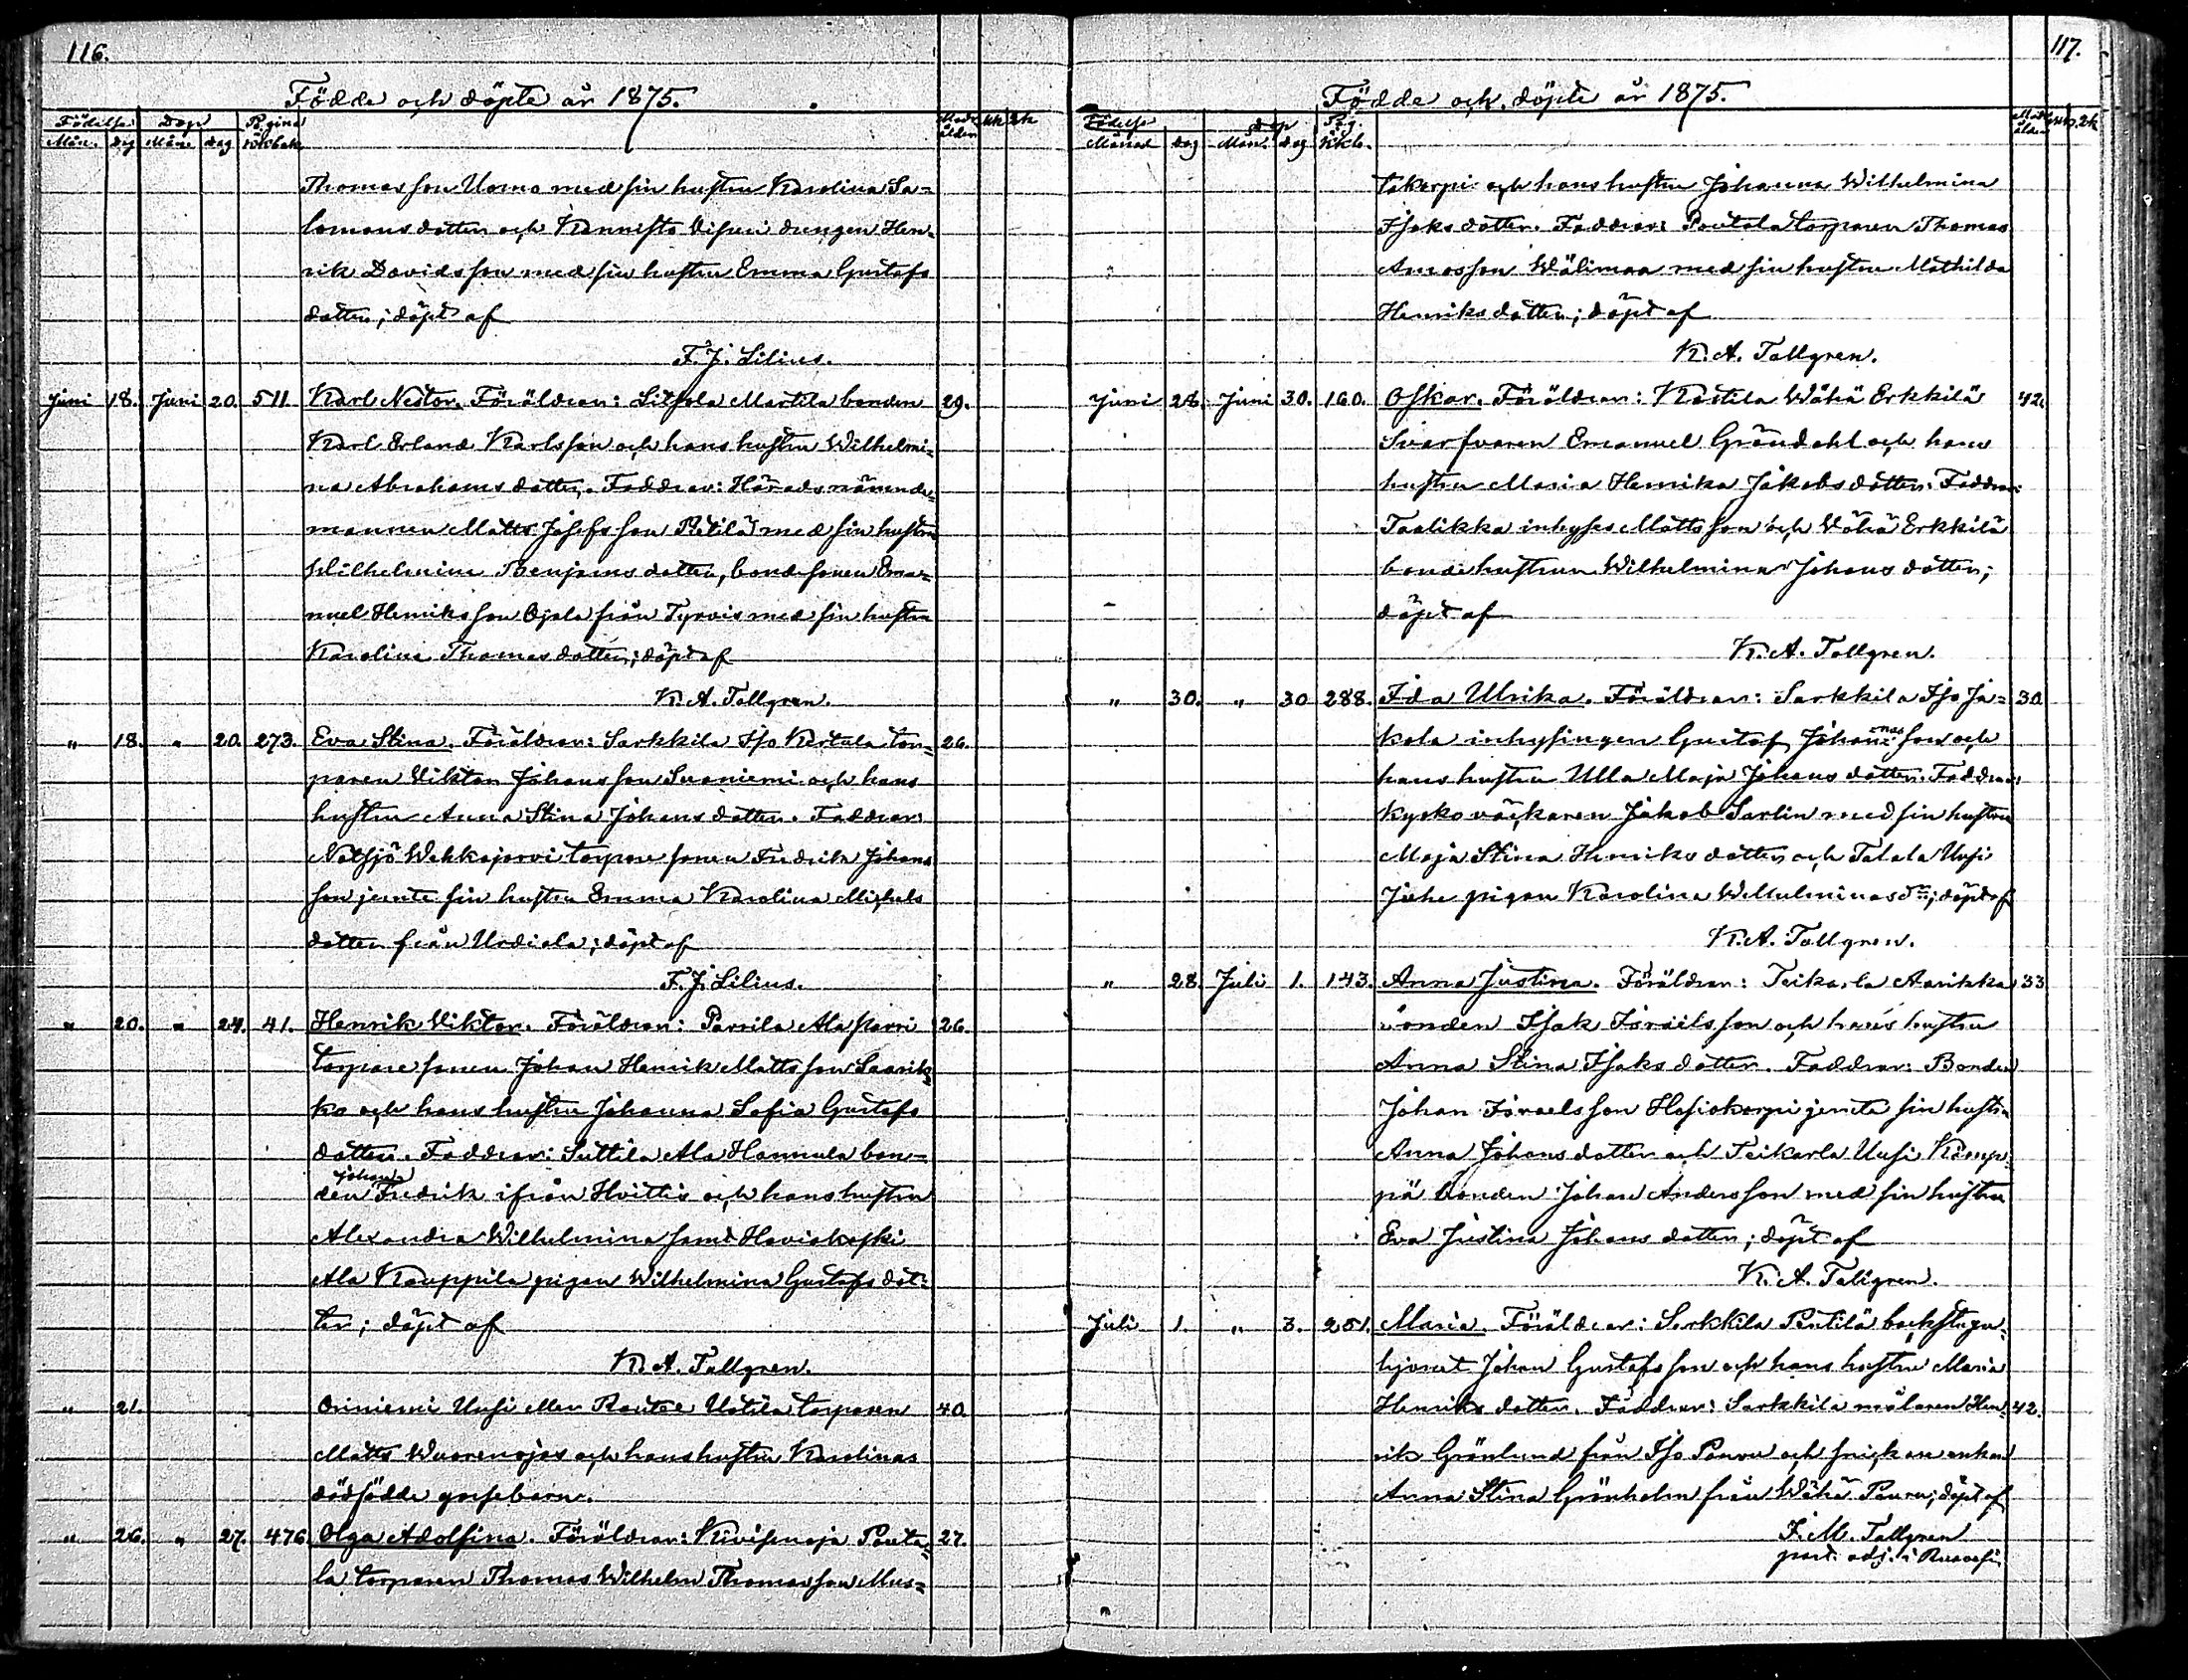 116.
Födde och döpte år 1875.
Födelse Dop Pagina Mod. ålder
Mån. dag Mån. dag
Thomasson Uomo med sin hustru Karolina Sa=
lomonsdotter och drengen Hen=
rik Davidsson med sin hustru Emma Gustafs
dotter; döpt af
F. J. Lilius.
Juni 18. Juni 20. 511. Karl Nestor. Föräldrar: Litsola Martila bonden 29.
Karl Erland Karlsson och hans hustru Wilhelmi=
na Abrahamsdotter. Faddrar: Häradsnämnde=
mannen Matts Josefsson Pietilä med sin hustru
Wilhelmina Benjamsdotter, bondsonen Ema=
nuel Henriksson Ojala från Tyrvis med sin hustru
Karolina Thomasdotter; döpt af
K. A. Tallgren.
" 18. " 20. 273. Eva Stina. Föräldrar: Sarkkila Iso Kertala tor= 26.
paren Viktor Johansson Suoniemi och hans
hustru Anna Stina Johansdotter. Faddrar:
Notsjö Wehkajärvi torparesonen Fredrik Johans
son jemte sin hustru Emma Karolina Michels
dotter från Urdiala; döpt af
F. J. Lilius.
" 20. " 24. 41. Henrik Viktor. Föräldrar: Parsila Ala Parri 26.
torparesonen Johan Henrik Mattsson Saarik=
ko och hans hustru Johanna Sofia Gustafs
dotter. Faddrar: Suttila Ala Hannula bon=
den Johan Fredrik ifrån Hvittis och hans hustru
Alexandra Wilhelmina samt Haviokoski
Ala Kauppila pigan Wilhelmina Gustafsdot=
ter; döpt af
K. A. Tallgren.
" 21. Oriniemi Uusi eller Rautee Uotila torparen 40.
Matts Wuorenojas och hans hustru Karolinas
dödfödde gossebarn.
" 26. " 27. 476. Olga Adolfina. Föräldrar: Kivisenoja Pouta= 27.
la torparen Thomas Wilhelm Thomasson Mus=
117.
Födde och döpte år 1875.
Födelse Dop Pag. Mod. ålder
Månad dag Mån. dag kkb.
takorpi och hans hustru Johanna Wilhelmina
Isaksdotter. Faddrar: Poutala torparen Thomas
Amosson Wälimaa med sin hustru Mathilda
Henriksdotter; döpt af
K. A. Tallgren.
Juni 28. Juni 30. 160. Oskar. Föräldrar: Kastila Wähä Erkkilä 42.
Svarfvaren Emanuel Gröndahl och hans
hustru Maria Henrika Jakobsdotter. Faddrar:
Taalikka inhyses Mattsson och Wähä Erkkilä
bondehustrun Wilhelmina Johansdotter;
döpt af
K. A. Tallgren.
" 30. " 30 288. Ida Ulrika. Föräldrar: Sarkkila Iso Ja= 30
kola inhysingen Gustaf Johannasson och
hans hustru Ulla Maja Johansdotter. Faddrar:
Kyrkoväckaren Jakob Sarlin med sin hustru
Maja Stina Henriksdotter och Talala Uusi
pigan Karolina Welhelminasdr; döpt af
K. A. Tallgren.
" 28. Juli 1. 143. Anna Justina. Föräldrar: Teikarla Aarikka 33
bonden Isak Israelsson och hans hustru
Anna Stina Isaksdotter. Faddrar: Bonden
Johan Israelsson Hosiokorpi jemte sin hustru
Anna Johansdotter och Teikarla Uusi Kämp=
pä bonden Johan Andersson med sin hustru
Eva Justina Johansdotter; döpt af
K. A. Tallgren.
Juli 1. " 3. 251. Maria. Föräldrar: Sarkkila Pentilä backstugu=
hjonet Johan Gustafsson och hans hustru Maria
Henriksdotter. Faddrar: Sarkkila målaren Hen= 42.
rik Grönlund från Iso Pouru och snickareenkan
Anna Stina Grönholm från Wähä Pouru; döpt af
I. M. Tallgren
past. adj. i Ruovesi.
"